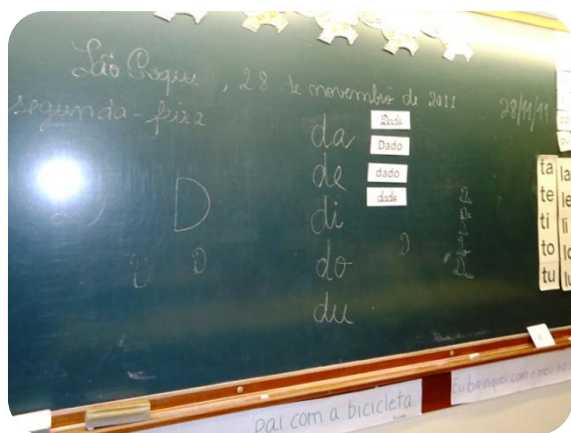 São Roque, 28 de novembro de 2011
28/11/11
segunda-feira
D
D
D
da
de
di
do
du
Dado
Dado
dado
dado
D
ta
te
ti
to
tu
la
le
li
lo
lu
pai com a bicicleta
Eu brinquei com o meu